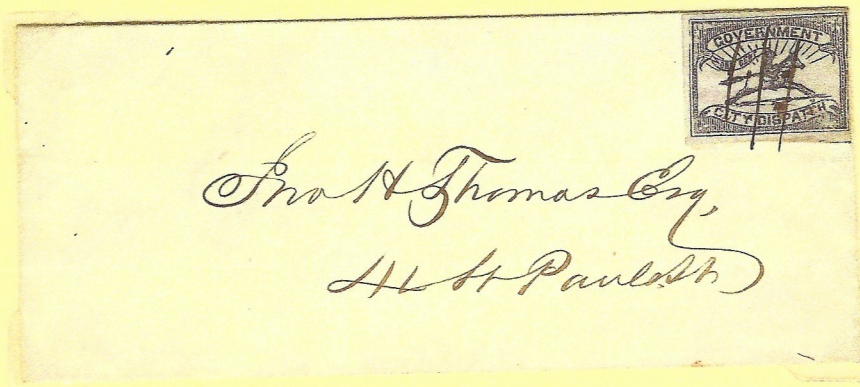 GOVERNMENT
CITY DISPATCH
Jno H Thomas Esq,
41 St Paul St